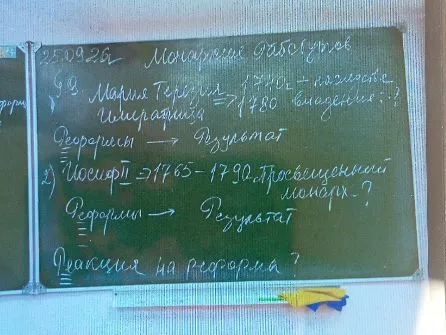 25.09.26г Монархия Габсбургов
1) Мария Терезия => 1740г – наследств.
Императрица 1780 владение: ?
Реформы → Результат
2) Иосиф II => 1765 – 1790 Просвещенный
монарх - ?
Реформы → Результат
Реакция на реформы?